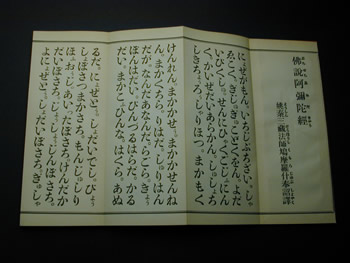 佛説阿彌陀經
姚秦三藏法師鳩摩羅什奉詔譯
にょぜがもん。いちじぶつざい。しゃ
ゑこく。ぎじゅぎっこどくをん。よだ
いびくしゅ。せんにひゃくごじふにん
く。かいぜだいあらかん。しゅしょち
しき。ちょうろうしゃりほつ。まかもく
けんれん。まかかせふ。まかかせんね
ん。まかくちら。りはだ。しゅりはん
だか。なんだあなんだ。らごらきょう
ぼんはだい。びんづるはらだ。かる
だい。まかこひんな。はくら。あぬ
るだ。にょぜとう。しょだいでし。びょう
しょぼさつまかさつ。もんじゅしり
ほふおうじ。あいつたぼさつ。けんだか
だいぼさつ。じょうしょうじんぼさつ。
よにょぜとう。しょだいぼさつ。ぎしゃ